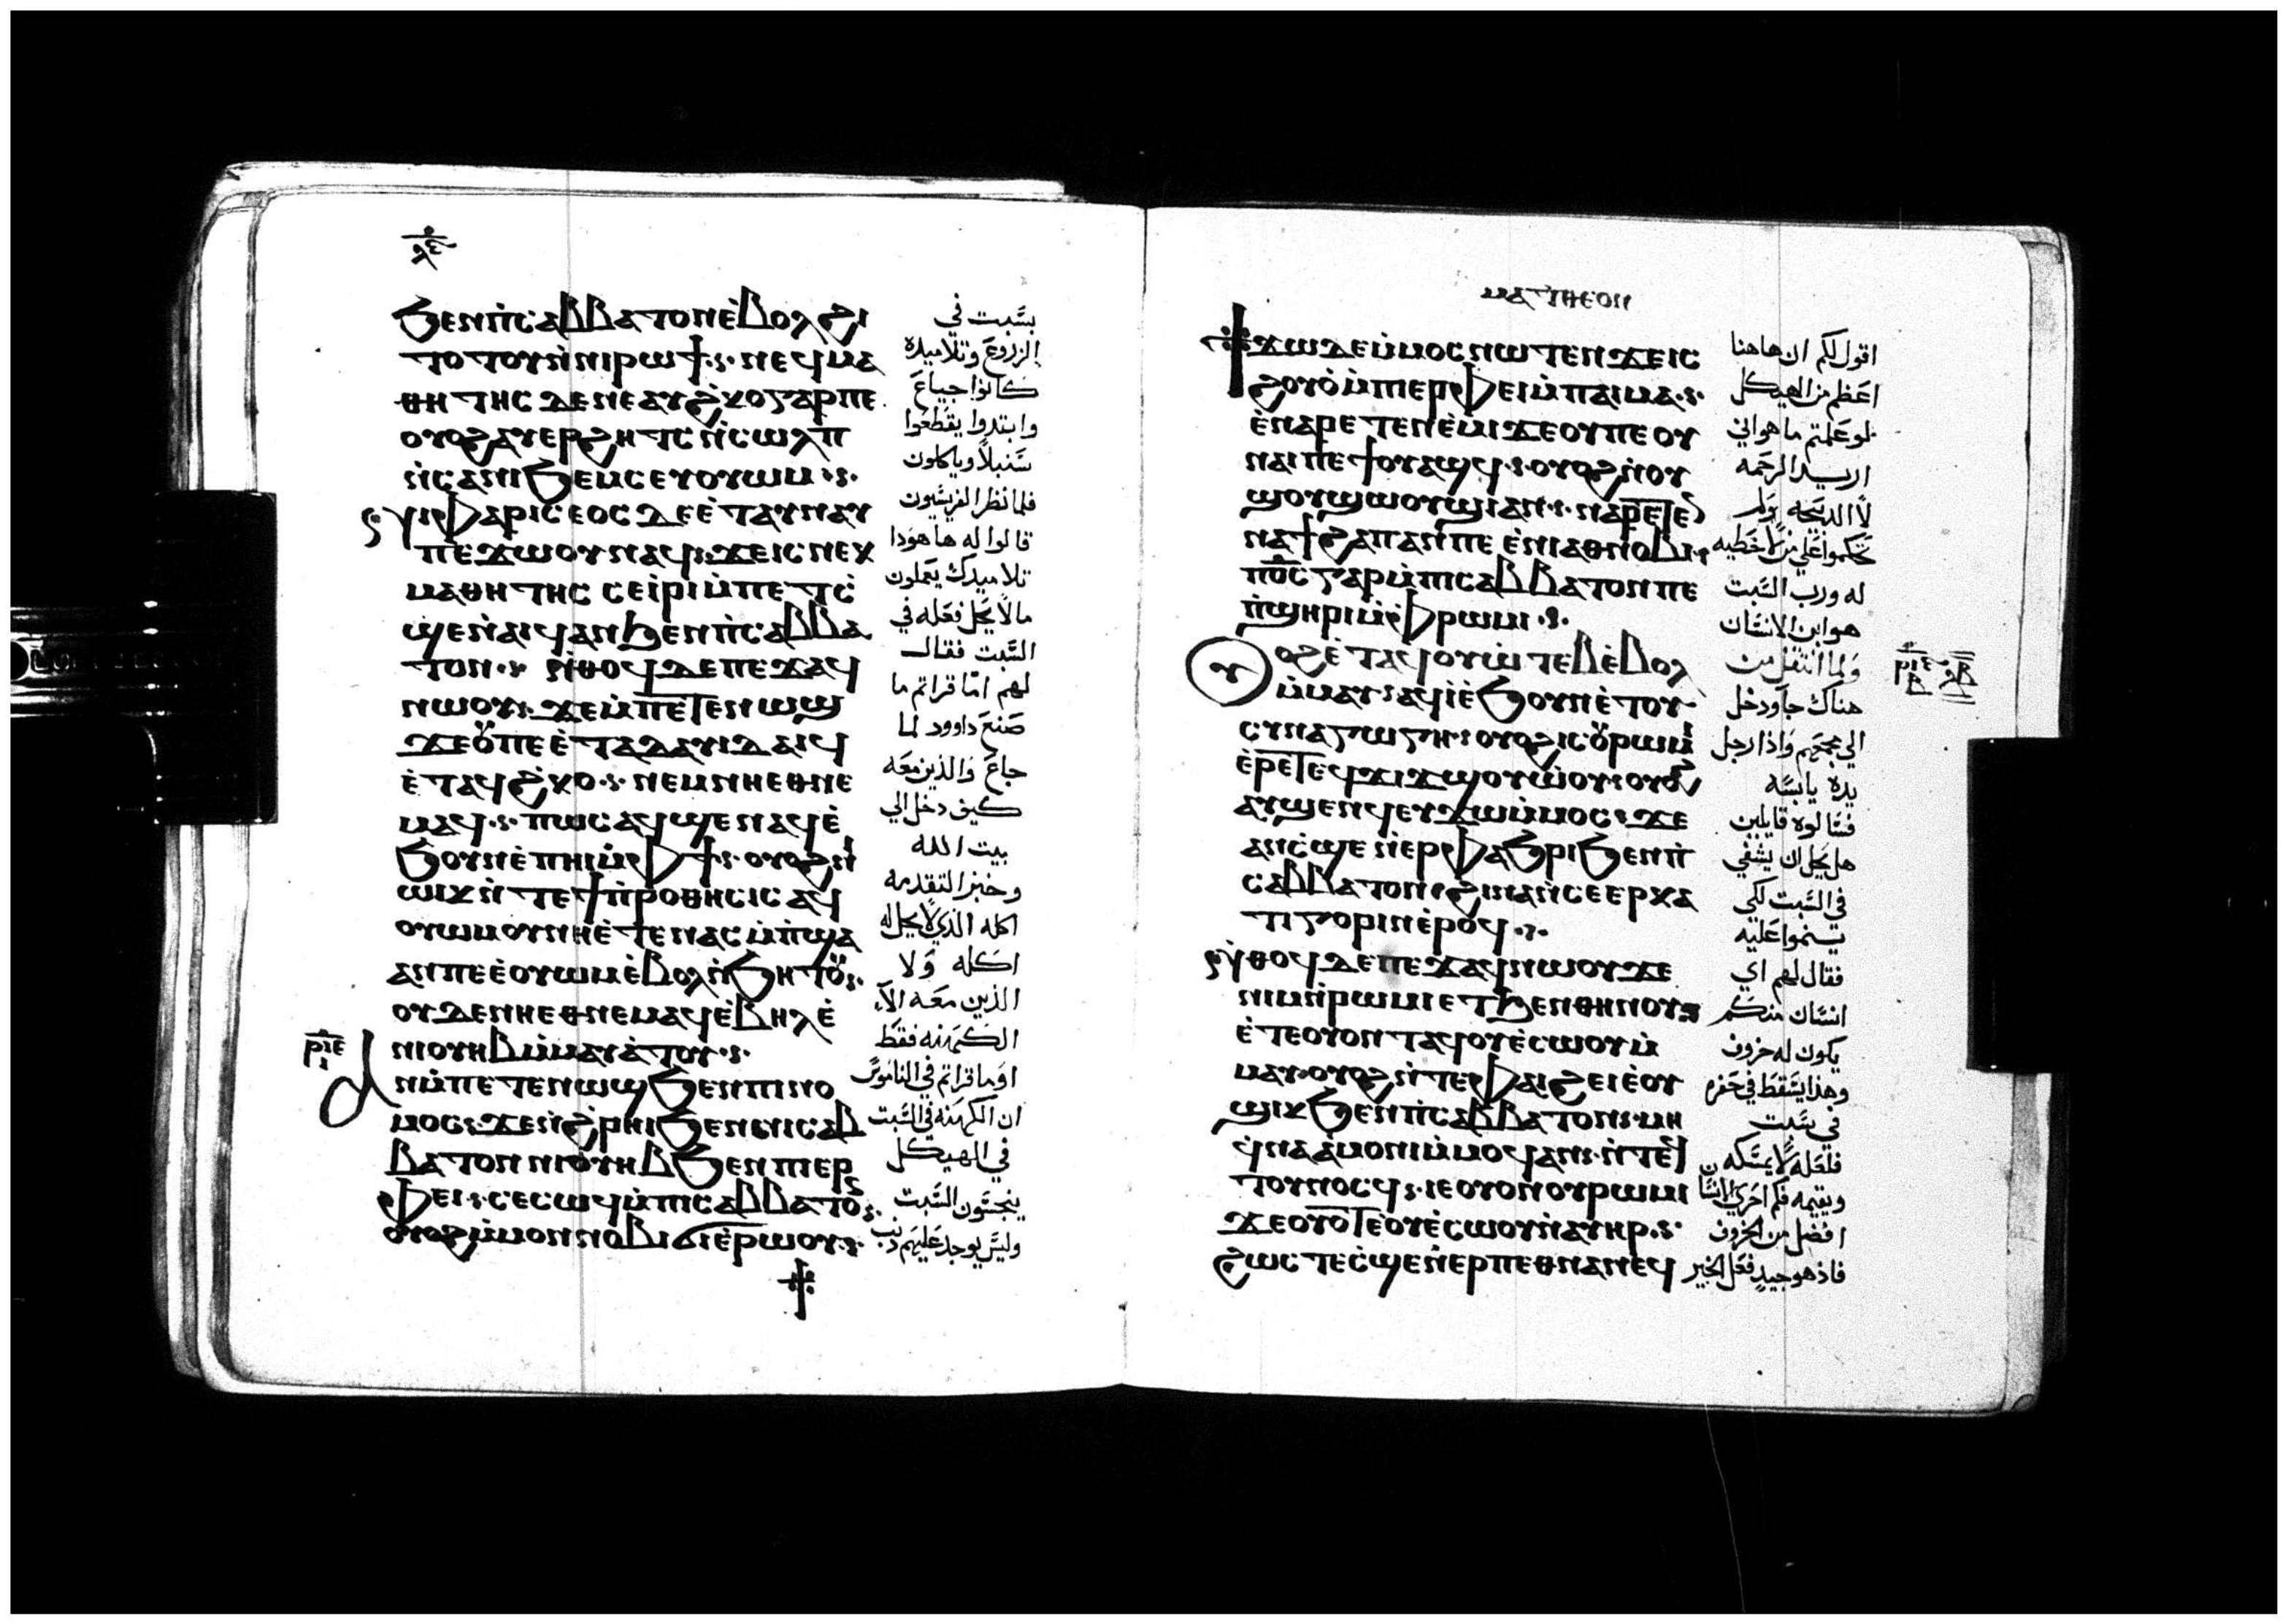 ϧⲉⲛⲡ̀ⲥⲁⲃⲃⲁⲧⲟⲛⲉ̀ⲃⲟⲗϩⲓ
ⲧⲟⲧⲟⲩⲛ̀ⲛⲓⲣⲱϯ. ⲛⲉϥⲙⲁ
ⲑⲏⲧⲏⲥ ⲇⲉⲛⲉⲁⲩϩ̀ⲕⲟⲅⲁⲣⲡⲉ
ⲟⲩⲟϩⲁⲩⲉⲣϩⲏⲧⲥ ⲛ̀ⲥⲱⲗⲡ
ⲛ̀ⲥⲁⲛⲓϧⲉⲙⲥⲉⲩⲟⲩⲱⲙ
ⲛⲓⲫⲁⲣⲓⲥⲉⲟⲥ ⲇⲉⲉ̀ⲧⲁⲩⲛⲁⲩ
ⲡⲉϫⲱⲟⲩⲛⲁϥ ϫⲉⲓⲥⲛⲉⲕ
ⲙⲁⲑⲏⲧⲏⲥ ⲥⲉⲓ̀ⲣⲓⲙ̀ⲡⲉⲧⲥ̀
ϣⲉⲛ̀ⲁⲓϥⲁⲛϧⲉⲛⲡ̀ⲥⲁⲃⲃⲁ
ⲧⲟⲛ. ⲛ̀ⲑⲟϥⲇⲉⲡⲉϫⲁϥ
ⲛⲱⲟⲩ ϫⲉⲙ̀ⲡⲉⲧⲉⲛⲱϣ
ϫⲉⲟⲩⲡⲉⲉ̀ⲧⲁⲇⲁⲩⲓⲇⲁⲓϥ
ⲉ̀ⲧⲁϥϩ̀ⲕⲟ. ⲛⲉⲙⲛⲏⲉⲑⲛⲉ
ⲙⲁϥ. ⲡⲱⲥⲁϥϣⲉⲛⲁϥⲉ̀
ϧⲟⲩⲛⲉ̀ⲡⲏⲓⲙ̀ⲫϯ. ⲟⲩⲟϩⲛⲓ
ⲱⲓⲕⲛ̀ⲧⲉϯⲡ̀ⲣⲟⲑⲏⲥⲓⲥ ⲁϥ
ⲟⲩⲱⲙⲟⲩⲛⲏⲉ̀ⲧⲉⲛⲁⲥⲙ̀ⲡ̀ϣⲁ
ⲁⲛⲡⲉⲉ̀ⲟⲩⲱⲙⲉ̀ⲃⲟⲗⲛ̀ϧⲏⲧⲟⲩ.
ⲟⲩⲇⲉⲛⲏⲉⲑⲛⲉⲙⲁϥⲉ̀ⲃⲏⲗⲉ̀
ⲛⲓⲟⲩⲏⲃⲙ̀ⲙⲁⲩⲁ̀ⲧⲟⲩ.
ⲛⲙ̀ⲡⲉⲧⲉⲛⲱϣϧⲉⲛⲡⲓⲛⲟ
ⲙⲟⲥ ϫⲉⲛ̀ϩ̀ⲣⲏⲓϧⲉⲛⲛⲓⲥⲁⲃ
ⲃⲁⲧⲟⲛ ⲛⲓⲟⲩⲏⲃϧⲉⲛⲡⲓⲉⲣ
ⲫⲉⲓ ⲥⲉⲥⲱϥⲙ̀ⲡⲓⲥⲁⲃⲃⲁⲧⲟ
ⲟⲩⲟϩⲙ̀ⲙⲟⲛⲛⲟⲃⲓϭⲓⲉ̀ⲣⲱⲟⲩ
بسَّبت في
الزروع وتلاميذه
كانوا جياع
وابتدوا يقطعوا
سَنبلاً وياكلون
فلما نظر الفريسَيون
قالوا له ها هودا
تلاميدك يعملون
مالا يحل فعله في
السَّبت فقال
لهم امّا قراتم ما
صَنع داوود لما
جاع والذين معَه
كيف دخل الي
بيت الله
وخبز التقدمه
اكله الذي لا يحل له
اكله وَلا
الذين معَه الاّ
الكَهَنه فقط
اوما قراتم في الناموسَ
ان الكهنه في السَّبت
في الهيكل
ينجسَون السَّبت
وليسَ يوجد عَليهم ذنب
ⲙⲁⲧⲑⲉⲟⲛ
ϯϫⲱⲇⲉⲙ̀ⲙⲟⲥⲛⲱⲧⲉⲛϫⲉⲓⲥ
ϩⲟⲩⲟ̀ⲙ̀ⲡⲓⲉⲣⲫⲉⲓⲙ̀ⲡⲁⲓⲙⲁ.
ⲉ̀ⲛⲁⲣⲉⲧⲉⲛⲉ̀ⲙⲓϫⲉⲟⲩⲡⲉⲟⲩ
ⲛⲁⲓⲡⲉϯⲟⲩⲁϣϥ. ⲟⲩⲟϩⲛ̀ⲟⲩ
ϣⲟⲩϣⲱⲟⲩϣⲓⲁⲛ. ⲛⲁⲣⲉⲧⲉ
ⲛⲁϯϩⲁⲡⲁⲛⲡⲉ ⲉ̀ⲛⲓⲁⲑⲛⲟⲃⲓ
ⲡⲟ̅ⲥ̅ⲅⲁⲣⲙ̀ⲡⲓⲥⲁⲃⲃⲁⲧⲟⲛⲡⲉ
ⲡ̀ϣⲏⲣⲓⲙ̀ⲫⲣⲱⲙⲓ.
ⲟⲩⲟϩⲉ̀ⲧⲁϥⲟⲩⲱ̀ⲧⲉⲃⲉ̀ⲃⲟⲗ
ⲙ̀ⲙⲁⲩ ⲁϥⲓ̀ⲉ̀ϧⲟⲩⲛⲉ̀ⲧⲟⲩ
ⲥⲩⲛⲁⲅⲱⲅⲏ. ⲟⲩⲟϩⲓⲥⲟⲩⲣⲱⲙⲓ
ⲉ̀ⲣⲉⲧⲉϥϫⲓϫϣⲟⲩⲱ̀ⲟⲩ ⲟⲩⲟϩ
ⲁⲩϣⲉⲛϥⲉⲩϫⲱⲙ̀ⲙⲟⲥ ϫⲉ
ⲁⲛⲥ̀ϣⲉⲛ̀ⲉⲣⲫⲁϧⲣⲓϧⲉⲛⲡ̀
ⲥⲁⲃⲃⲁⲧⲟⲛ ϩⲓⲛⲁⲛ̀ⲥⲉⲉⲣⲕⲁ
ⲧⲓⲅⲟⲣⲓⲛⲉ̀ⲣⲟϥ.
ⲛ̀ⲑⲟϥⲇⲉⲡⲉϫⲁϥⲛⲱⲟⲩϫⲉ
ⲛⲓⲙⲛ̀ⲣⲱⲙⲓⲉⲧϧⲉⲛⲑⲏⲛⲟⲩ
ⲉ̀ⲧⲉⲟⲩⲟⲛⲧⲁϥⲟⲩⲉ̀ⲥⲱⲟⲩⲙ̀
ⲙⲁⲩ ⲟⲩⲟϩⲛ̀ⲧⲉⲫⲁⲓϩⲉⲓⲉ̀ⲟⲩ
ϣⲓⲕϧⲉⲛⲡ̀ⲥⲁⲃⲃⲁⲧⲟⲛ ⲙⲏ
ϥ̀ⲛⲁⲁ̀ⲙⲟⲛⲓⲙ̀ⲙⲟϥⲁⲛ ⲛ̀ⲧⲉϥ
ⲧⲟⲩⲛⲟⲥϥ. ⲓⲉⲟⲩⲟⲛⲟⲩⲣⲱⲙⲓ
ϫⲉⲟⲩⲟⲧⲉⲟⲩⲉ̀ⲥⲱⲟⲩⲛ̀ⲁⲩⲏⲣ.
ϩⲱⲥⲧⲉⲥ̀ϣⲉⲛ̀ⲉⲣⲡⲉⲑⲛⲁⲛⲉϥ
اقول لكم ان هاهنا
اعَظم من الهيكل
لو عَلمتم ما هو اني
اريد الرحَمه
لا الدبيحَه ولم
تحكموا علي من لا خَطيه
له ورب السَّبت
هو ابن الانسَان
وَلما انتقل من
هناك جآ ودخل
الي مجمَعهم وَاذا رجل
يده يابسَه
فسَالوه قايلين
هل يحل ان يشفي
في السَّبت لكي
ينموا عَليه
فقال لهم اي
انسَان منكم
يكون له خروف
وهذا يسَقط في حَفره
في سَبت
فلعَله لا يمسَكه
ويقيمه فكم احَري الانسَان
افضل من الخروف
فاذ هو جيد فعَل الخير